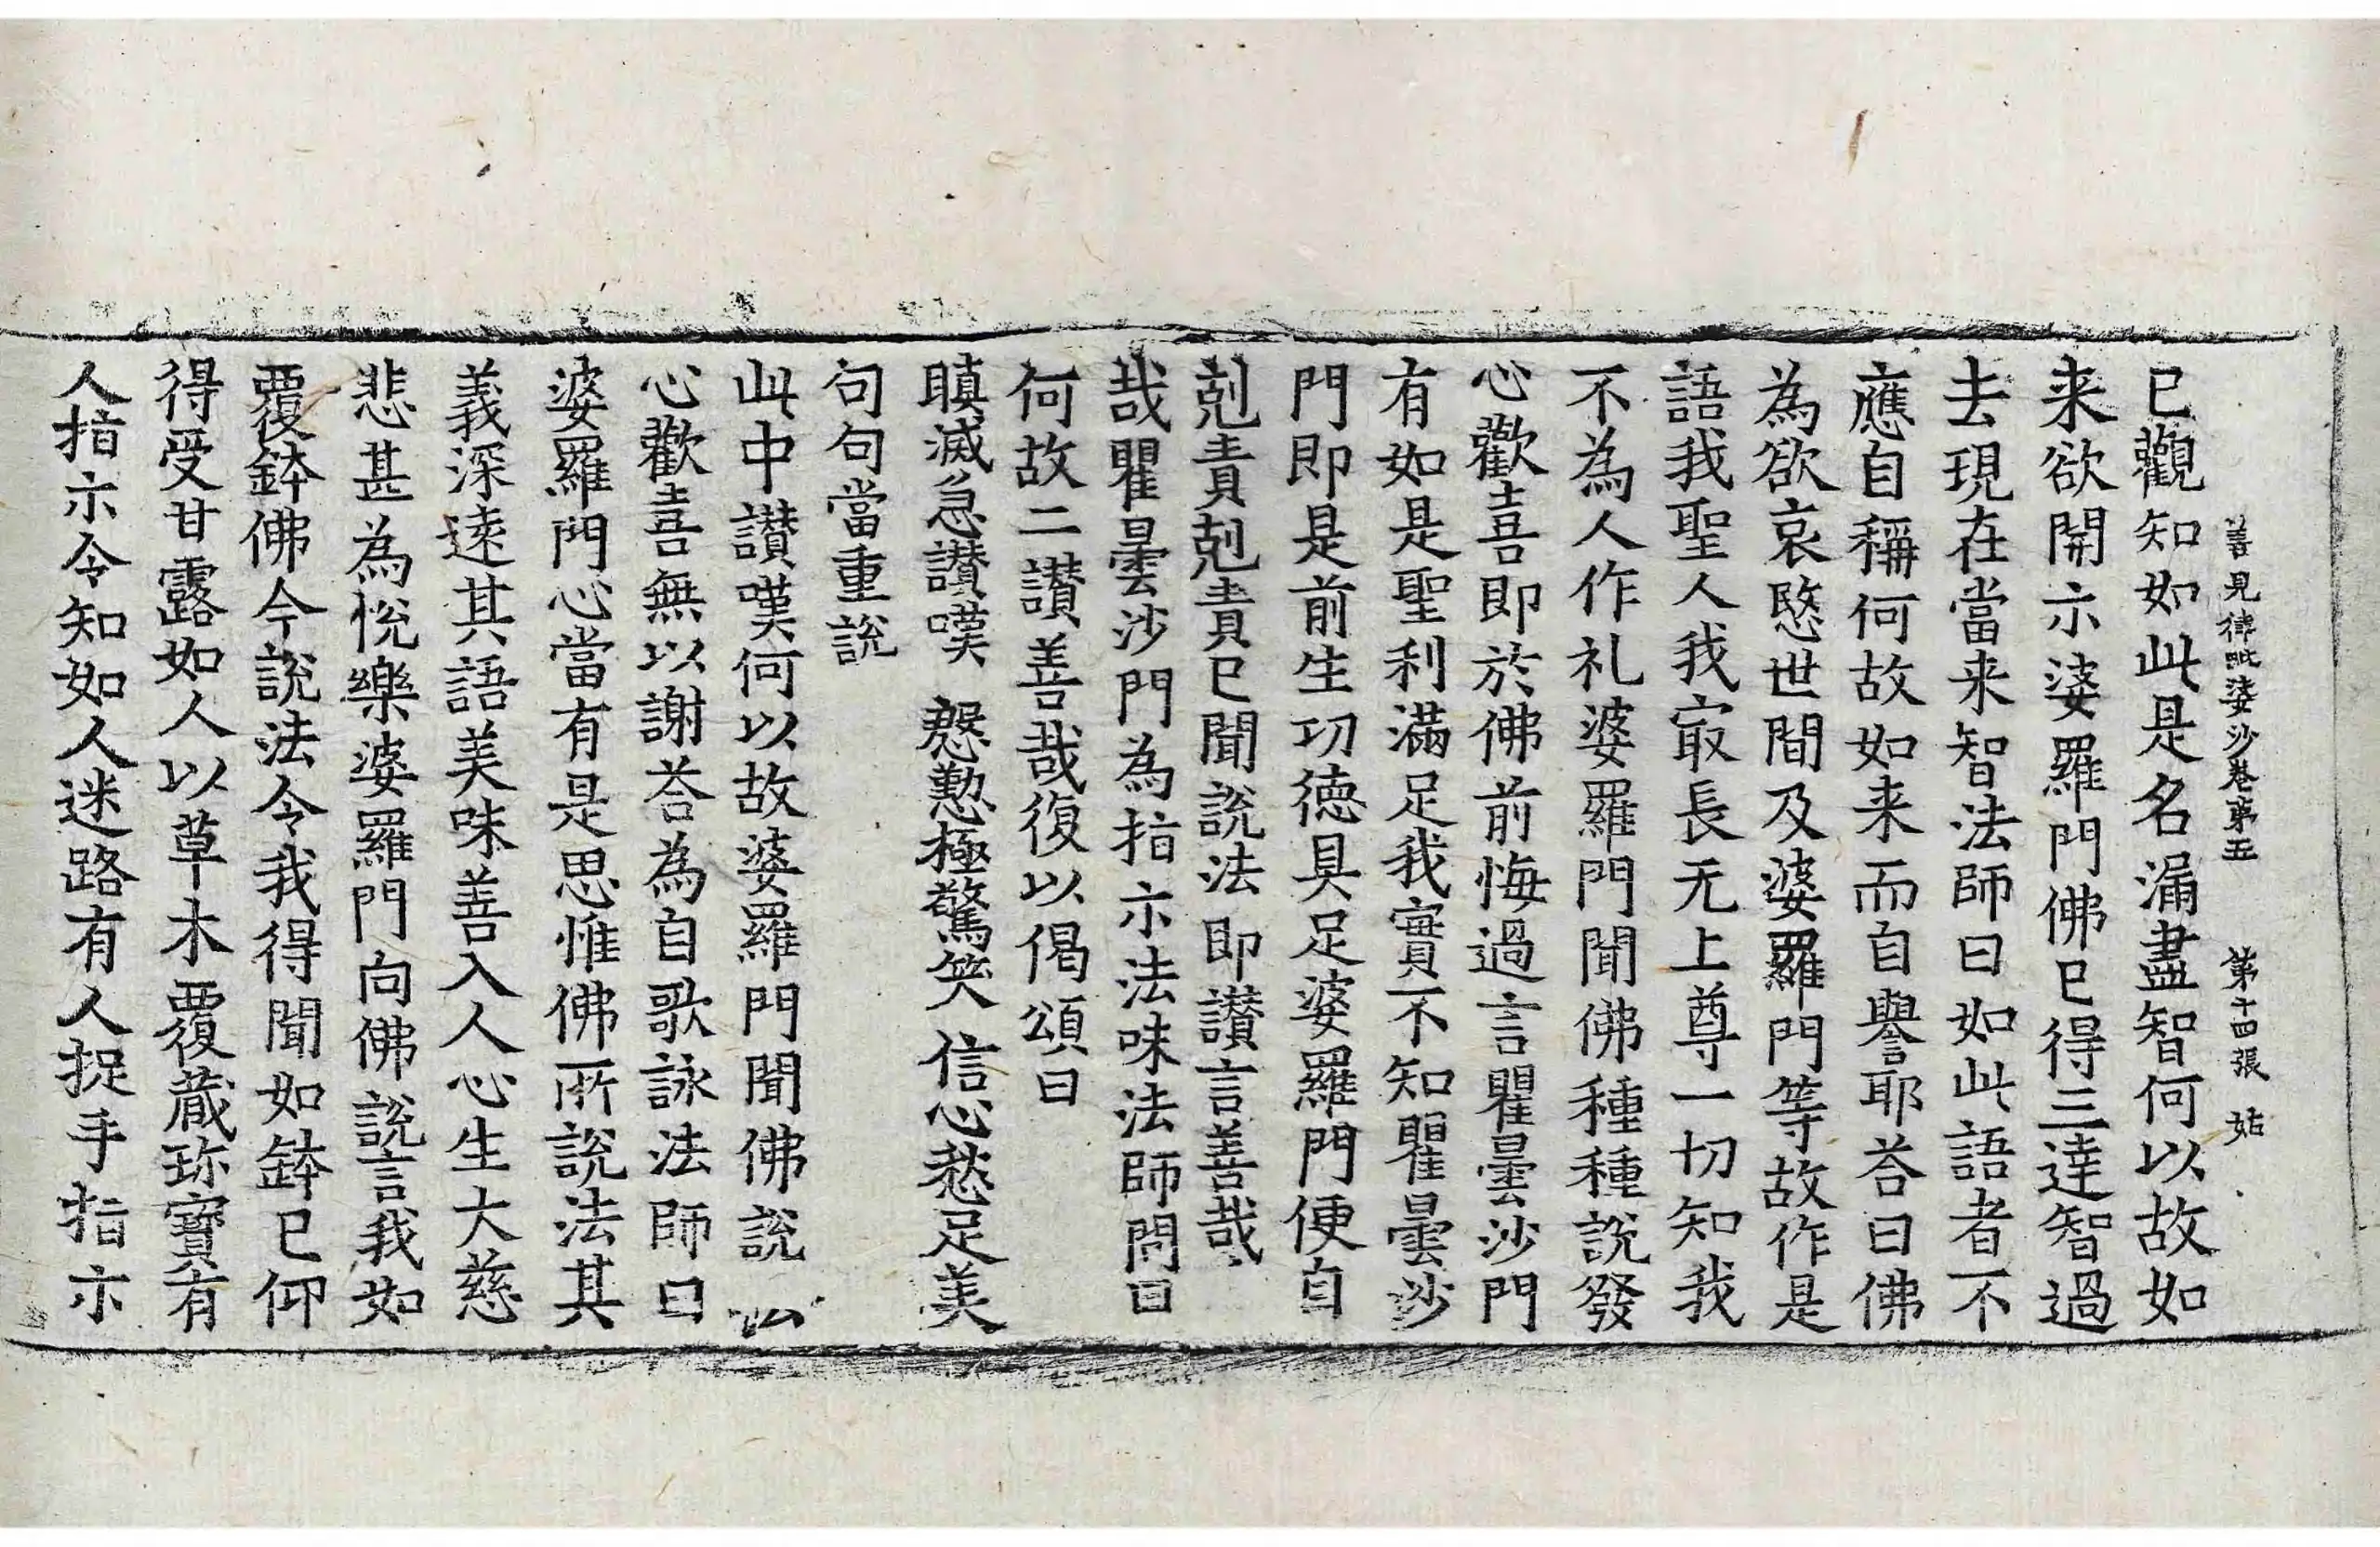 善見律毗婆沙卷第五 第十四張 姑
已觀知如此是名漏盡智何以故如
来欲開示婆羅門佛已得三達智過
去現在當来智法師曰如此語者不
應自稱何故如来而自譽耶荅曰佛
為欲哀愍世間及婆羅門等故作是
語我聖人我㝡長无上尊一切知我
不為人作礼婆羅門聞佛種種說發
心歡喜即於佛前悔過言瞿曇沙門
有如是聖利滿足我實不知瞿曇沙
門即是前生功德具足婆羅門便自
剋責剋責已聞說法即讃言善哉
哉瞿曇沙門為指示法味法師問曰
何故二讃善哉復以偈頌曰
瞋滅急讃嘆 慇懃極驚笑 信心愁足美
句句當重說
此中讃嘆何以故婆羅門聞佛說
心歡喜無以謝荅為自歌詠法師曰
婆羅門心當有是思惟佛所說法其
義深逺其語美味善入人心生大慈
悲甚為悅樂婆羅門向佛說言我如
覆鉢佛今說法令我得聞如鉢已仰
得受甘露如人以草木覆蔵珎寶有
人指示令知如人迷路有人捉手指示